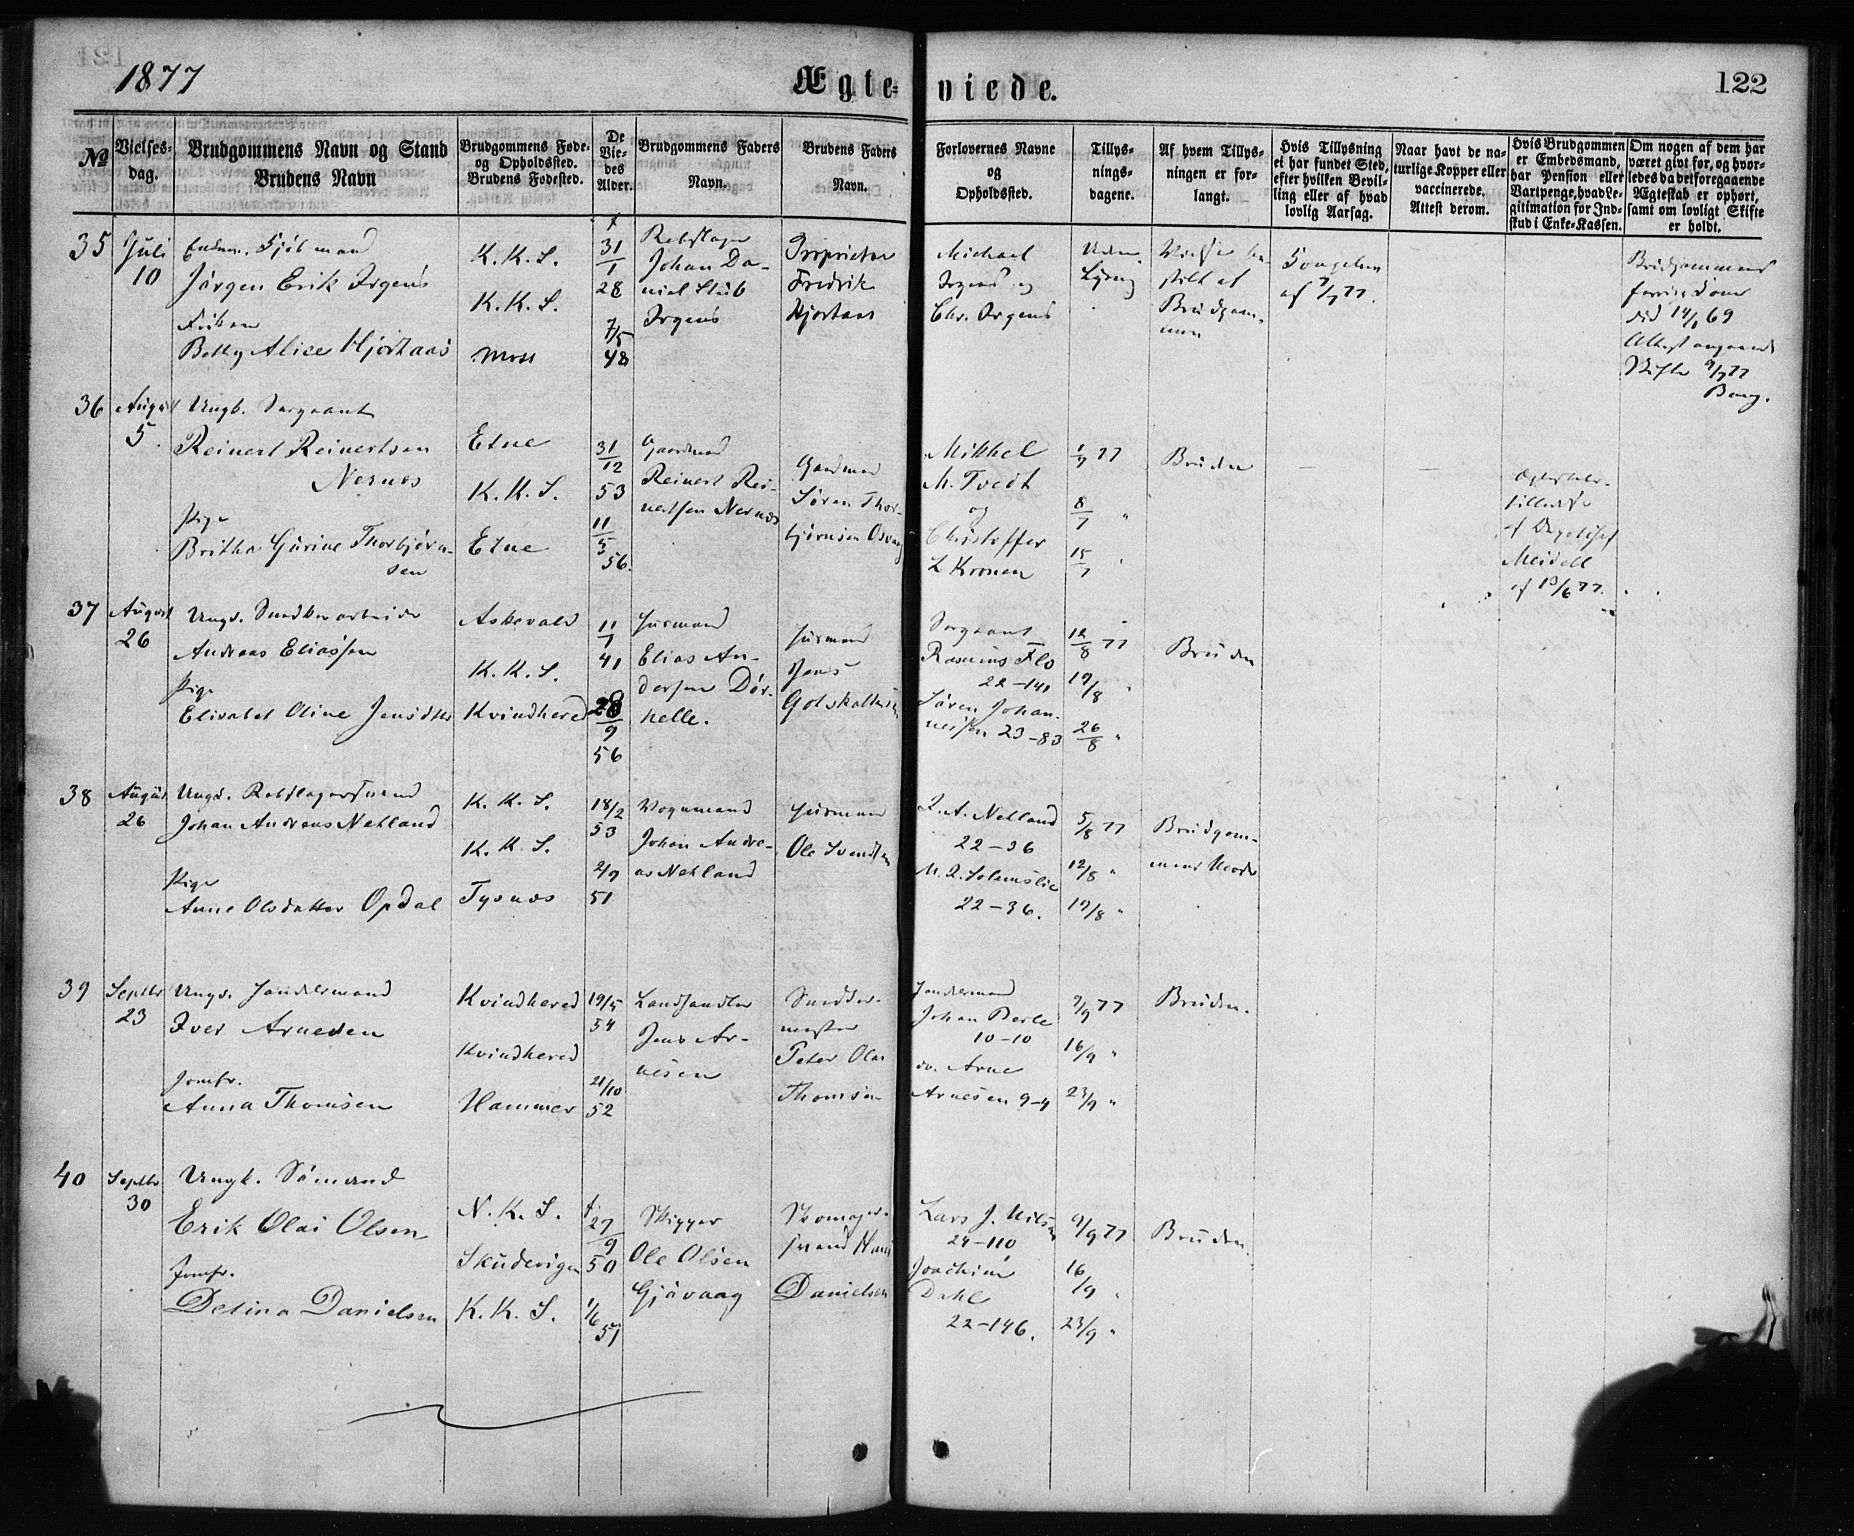 1877
Ægte-
viede.
122
No
Vielses-
dag.
Brudgommens Navn og Stand
Brudens Navn
Brudgommens Føde-
og Opholdssted.
Brudens Fødested.
De
Vie-
des
Alder.
Brudgommens Faders
Navn.
Brudens Faders
og
Navn.
Forlovernes Navne
og
Opholdssted.
Tillys-
nings-
dagene.
Af hvem Tillys-
ningen er for-
langt.
Hvis Tillysning
ei har fundet Sted,
efter hvilken Bevil-
ling eller af hvad
lovlig Aarsag.
Naar havt de na-
turlige Kopper eller
vaccinerede.
Attest derom.
Hvis Brudgommen
er Embedsmand,
har Pension eller
Vartpenge, hvad Le-
gitimation for Ind-
skud i Enke-Kassen.
Om nogen af dem har
været givt før, og hvor-
ledes da det foregaaende
Ægteskab er ophørt,
samt om lovligt Skifte
er holdt.
35
Juli
10
Enkem. Kjøbmand
Jørgen Erik Irgens
Frøken
Betty Alice Hjortaas
K. K. S.
K. K. S.
Moss
31/1
28
7/5
48
Rebslager
Johan Da-
niel Stub
Irgens
Proprietær
Fredrik
Hjortaas
Michael
Irgens og
Chr. Irgens
Uden
Lysning
Brudgom-
men
Kongebrev
af 7/7 77.
Brudgommens
forrige Kone
død 14/1 69
Attest angaaende
Skifte 9/7 77
36
August
5.
Ungk. Sergeant
Reinert Reinertsen
Nernes
Pige
Britha Gurine Thorbjørn-
sen
Etne
K. K. S.
Etne
31/12
53
11/5
56.
Gaardmand
Reinert Rei-
nertsen Nernes
Gaardmand
Søren Thor-
bjørnsen
Mikkel
M. Tvedt
og
Christoffer
L Kronen
1/7 77
8/7 "
15/7 "
Bruden
Ægteskabs-
tilladelse
Meidell
af 13/6 77.
37
August
26
Ungk. Smedkearbeider
Andreas Eliassen
Pige
Elisabet Oline Jensdtr
Askevold
K. K. S.
Kvindhered
11/1
41
28/9
56
Husmand
Elias An-
dersen Dør-
helle.
Husmand
Jens
Gotskalksen
Sergeant
Rasmus Flo
22-141
Søren Johan-
nessen 23-83
12/8 77
19/8 "
26/8 "
Bruden
38
August
26
Ungk. Rebslagersvend
Johan Andreas Netland
Pige
Anne Olsdatter Opdal
K. K. S.
K. K. S.
Tysnes
18/2
53
2/9
51
Vognmand
Johan Andre-
as Netland
Husmand
Ole Svendsen
J. A. Netland
22-36
M. J. Solemslie
22-36.
5/8 77
12/8 "
19/8 "
Brudgom-
mens Moder
39
Septbr
23
Ungk. Handelsmand
Iver Arnesen
Jomfr.
Anna Thomsen
Kvindhered
Kvindhered
Hammer
19/5
54
21/10
52
Landhandler
Jens Ar-
nesen
Smedder-
mester
Peter Olai
Thomsen
Handelsmand
Johan Berle
10-10
do. Arne
Arnesen 9-4
9/9 77
16/9 "
23/9 "
Bruden.
40
Septbr
30
Ungk. Sømand
Erik Olai Olsen
Jomfr.
Delina Danielsen
N. K. S.
Skudevigen
K. K. S.
27/9
50
1/6
51
Skipper
Ole Olsen
Gjøvaag
Skomager-
svend Hans
Danielsen
Lars J. Nilsen
24-110
Joachim
Dahl
22-146.
9/9 77
16/9 "
23/9 "
Bruden.